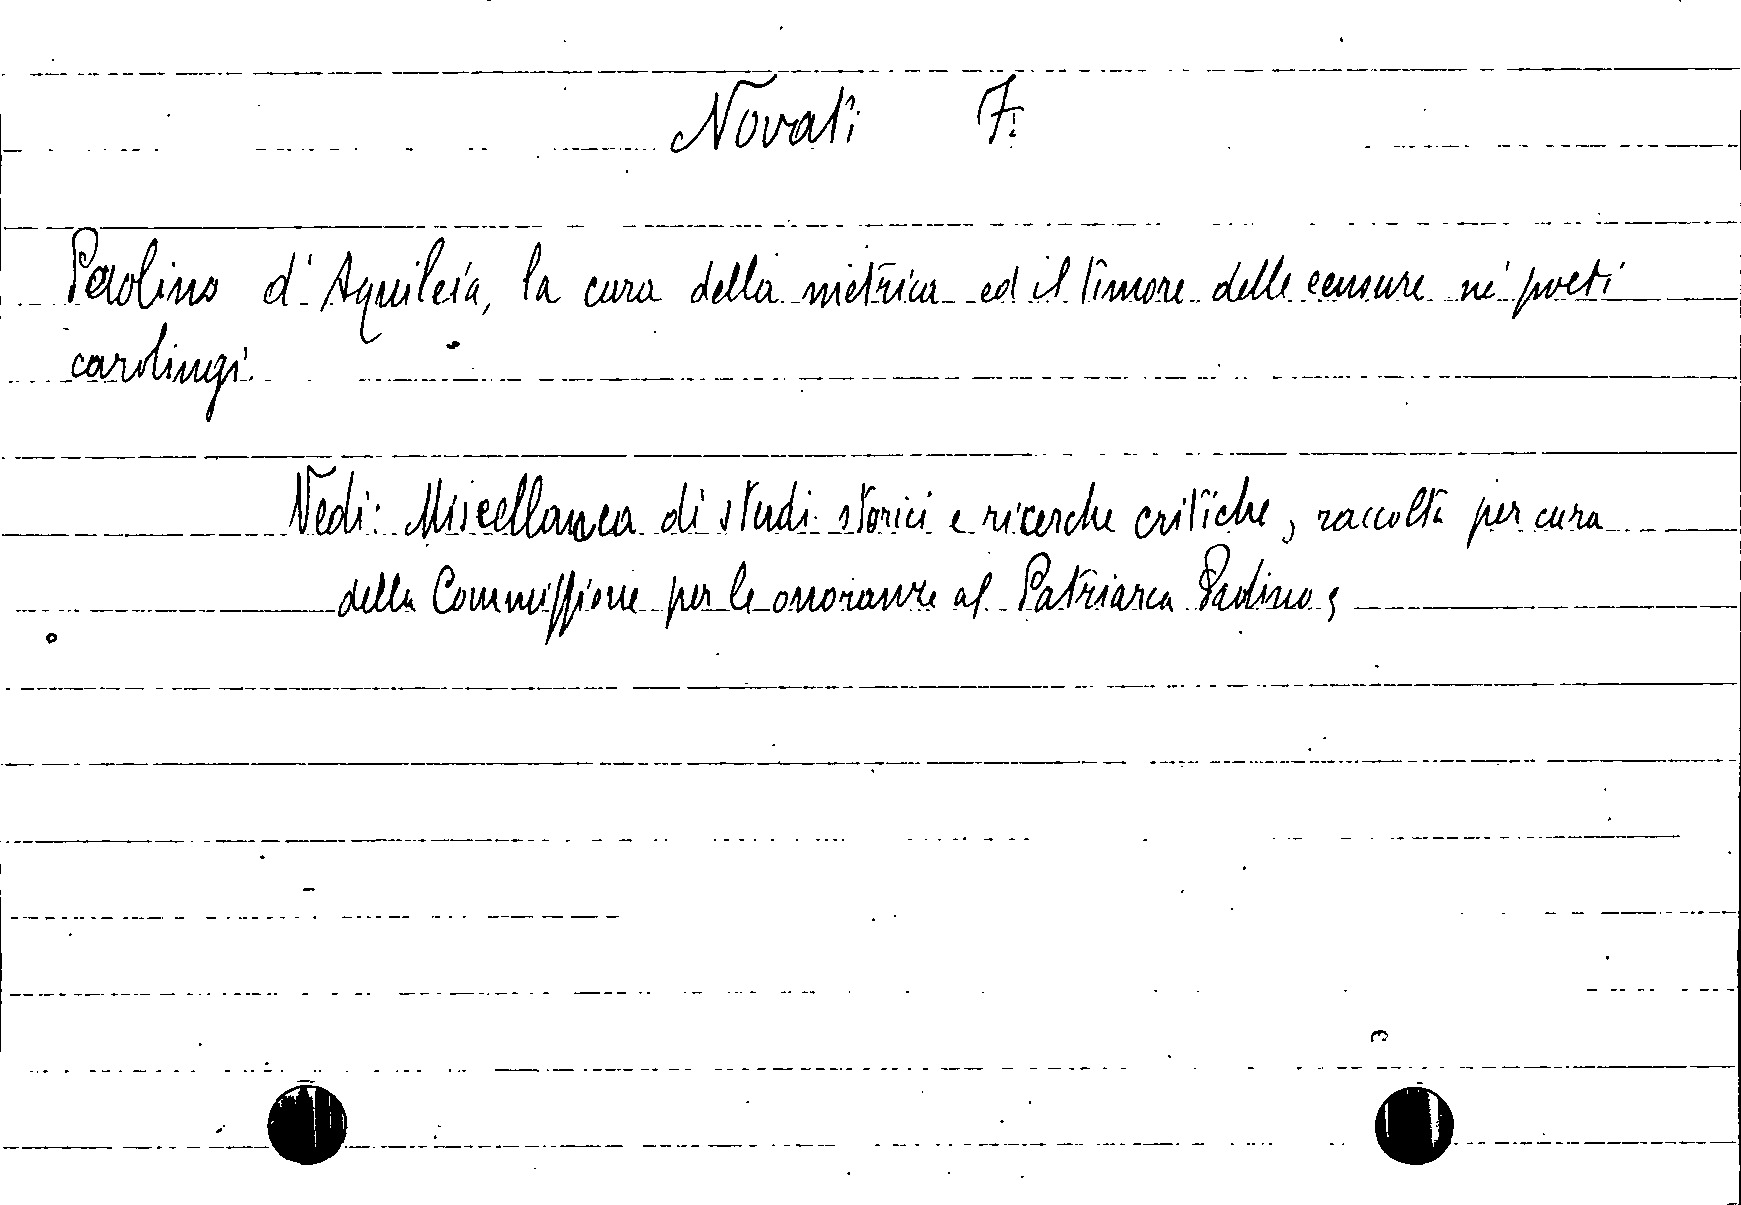 Novati F.
Paolino d'Aquileia, la cura della metrica ed il timore delle censure ne' poeti
carolingi.
Vedi: Miscellanea di studi storici e ricerche critiche, raccolta per cura
della Commissione per le onoranze al Patriarca Paolino;
3